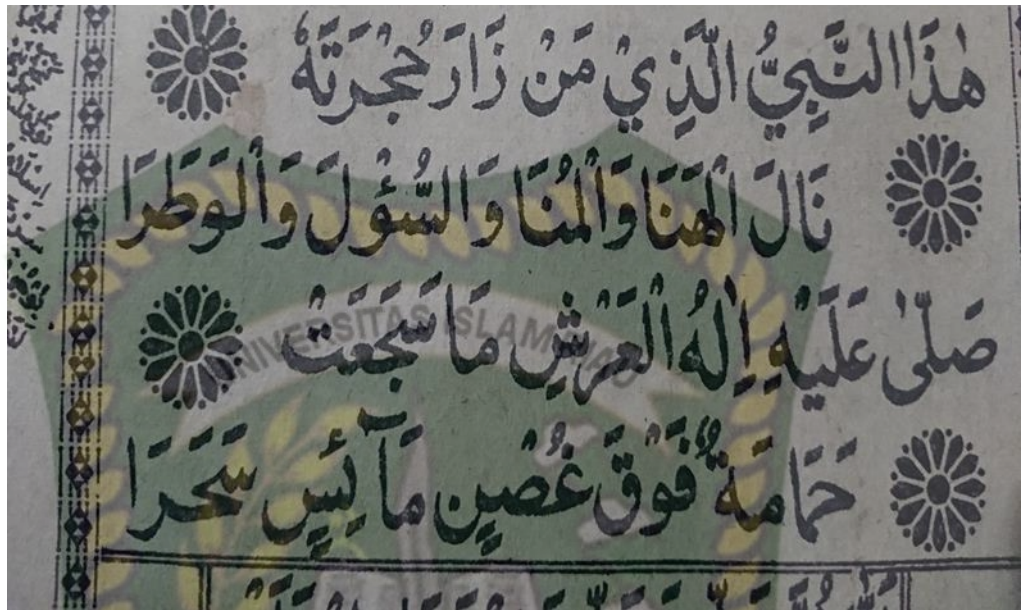 هٰذَا النَّبِيُّ الَّذِيْ مَنْ زَارَ حُجْرَتَهُ
نَالَ الْهَنَا وَالْمُنَا وَالسُّؤْلَ وَالْوَطَرَا
صَلّٰى عَلَيْهِ اِلٰهُ الْعَرْشِ مَا سَجَعَتْ
حَمَامَةٌ فَوْقَ غُصْنٍ مَآئِسٍ سَحَرَا
UNIVERSITAS ISLAM RIAU